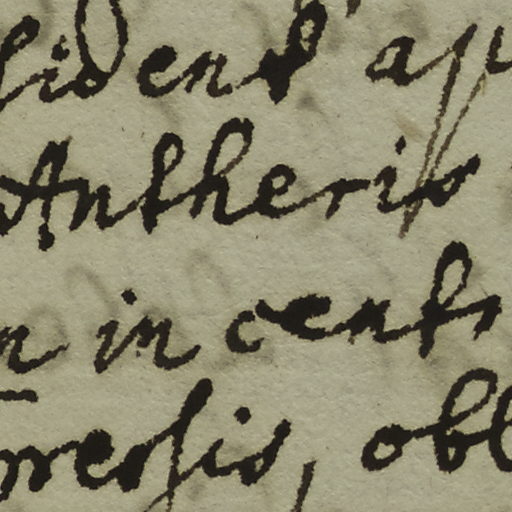 sident app
Antheris
n in centr
mersis, obl